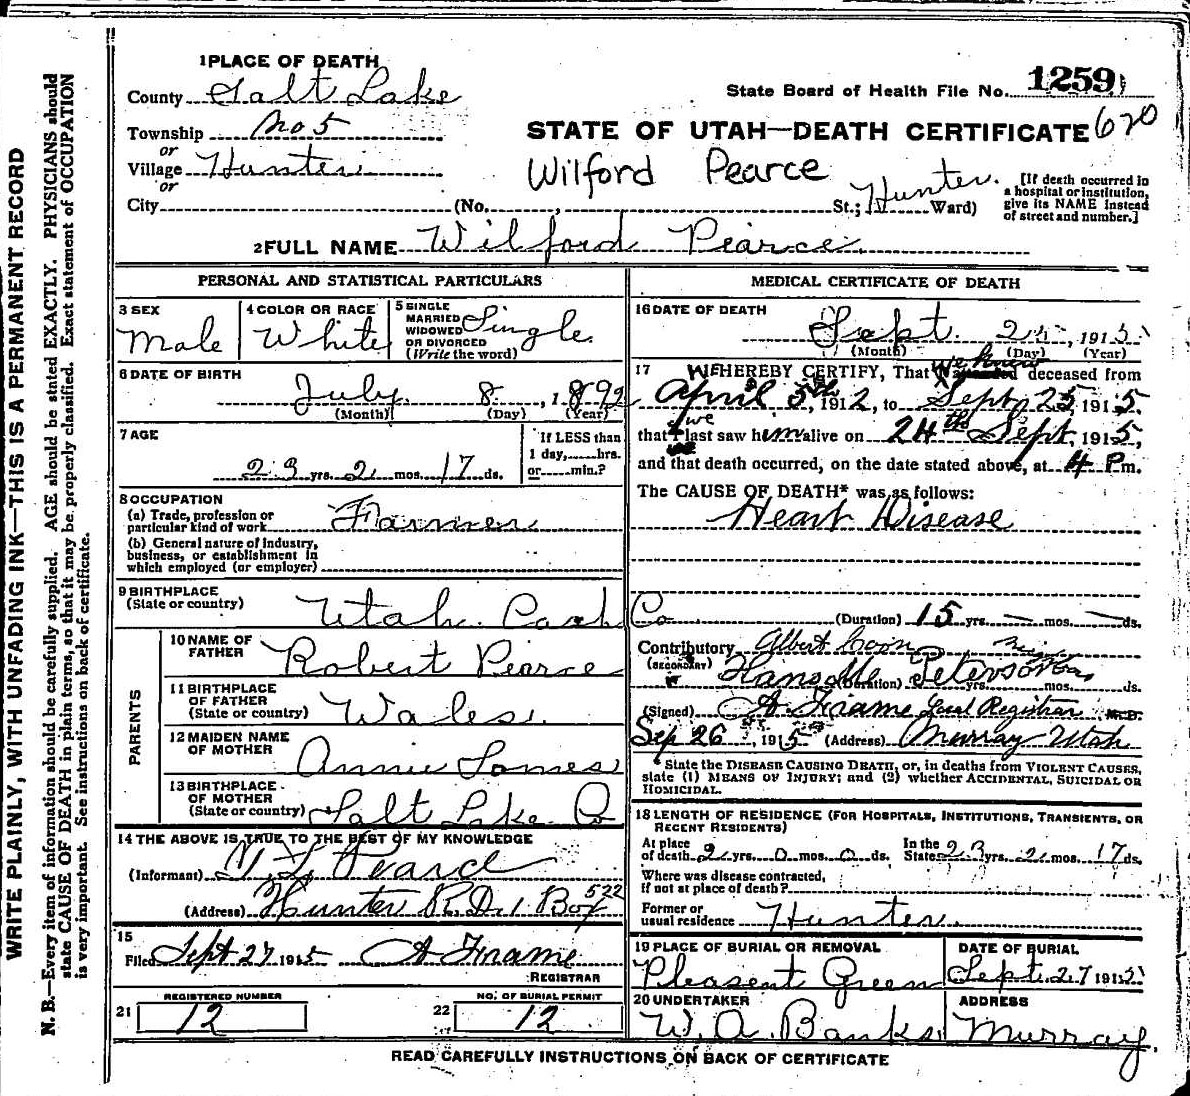 WRITE PLAINLY, WITH UNFADING INK—THIS IS A PERMANENT RECORD
N. B.—Every item of information should be carefully supplied. AGE should be stated EXACTLY. PHYSICIANS should
state CAUSE OF DEATH in plain terms, so that it may be properly classified. Exact statement of OCCUPATION
is very important. See instructions on back of certificate.
1 PLACE OF DEATH
County Salt Lake
State Board of Health File No. 1259
Township No 5
or
STATE OF UTAH—DEATH CERTIFICATE 620
Village Hunter
or
Wilford Pearce
City (No. , St.; Hunter Ward)
[If death occurred in
a hospital or institution,
give its NAME instead
of street and number.]
2 FULL NAME Wilford Pearce
PERSONAL AND STATISTICAL PARTICULARS
3 SEX
Male
4 COLOR OR RACE
White
5 SINGLE
MARRIED
WIDOWED
OR DIVORCED
(Write the word)
Single
6 DATE OF BIRTH
July 8, 1892
(Month) (Day) (Year)
7 AGE
23 yrs. 2 mos. 17 ds.
If LESS than
1 day, hrs.
or min.?
8 OCCUPATION
(a) Trade, profession or
particular kind of work Farmer
(b) General nature of industry,
business, or establishment in
which employed (or employer)
9 BIRTHPLACE
(State or country) Utah. Cash Co
PARENTS
10 NAME OF
FATHER Robert Pearce
11 BIRTHPLACE
OF FATHER
(State or country) Wales.
12 MAIDEN NAME
OF MOTHER Annie
13 BIRTHPLACE
OF MOTHER
(State or country) Salt Lake Co
14 THE ABOVE IS TRUE TO THE BEST OF MY KNOWLEDGE
(Informant)
(Address) Hunter R.D. 1 Box 522
15
Filed Sept 27 1915 A Frame
REGISTRAR
21 REGISTERED NUMBER
12
22 NO. OF BURIAL PERMIT
12
MEDICAL CERTIFICATE OF DEATH
16 DATE OF DEATH
Sept. 25, 1915
(Month) (Day) (Year)
17 WE HEREBY CERTIFY, That We knew deceased from
April 5th, 1912, to Sept 25, 1915,
that we last saw him alive on 24th Sept, 1915,
and that death occurred, on the date stated above, at 4 P m.
The CAUSE OF DEATH* was as follows:
Heart Disease
(Duration) 15 yrs. — mos. — ds.
Contributory Albert Coon
(SECONDARY) Hans M Peterson
(Duration) yrs. mos. ds.
(Signed) A. Frame Local Registrar M.D.
Sep 26, 1915 (Address) Murray Utah
*State the DISEASE CAUSING DEATH, or, in deaths from VIOLENT CAUSES,
state (1) MEANS OF INJURY; and (2) whether ACCIDENTAL, SUICIDAL OR
HOMICIDAL.
18 LENGTH OF RESIDENCE (FOR HOSPITALS, INSTITUTIONS, TRANSIENTS, OR
RECENT RESIDENTS)
At place
of death 2 yrs. 0 mos. 0 ds.
In the
State 23 yrs. 2 mos. 17 ds.
Where was disease contracted,
if not at place of death?
Former or
usual residence Hunter.
19 PLACE OF BURIAL OR REMOVAL
Pleasent Green
DATE OF BURIAL
Sept. 27 1915
20 UNDERTAKER
W. A. Banks
ADDRESS
Murray.
READ CAREFULLY INSTRUCTIONS ON BACK OF CERTIFICATE